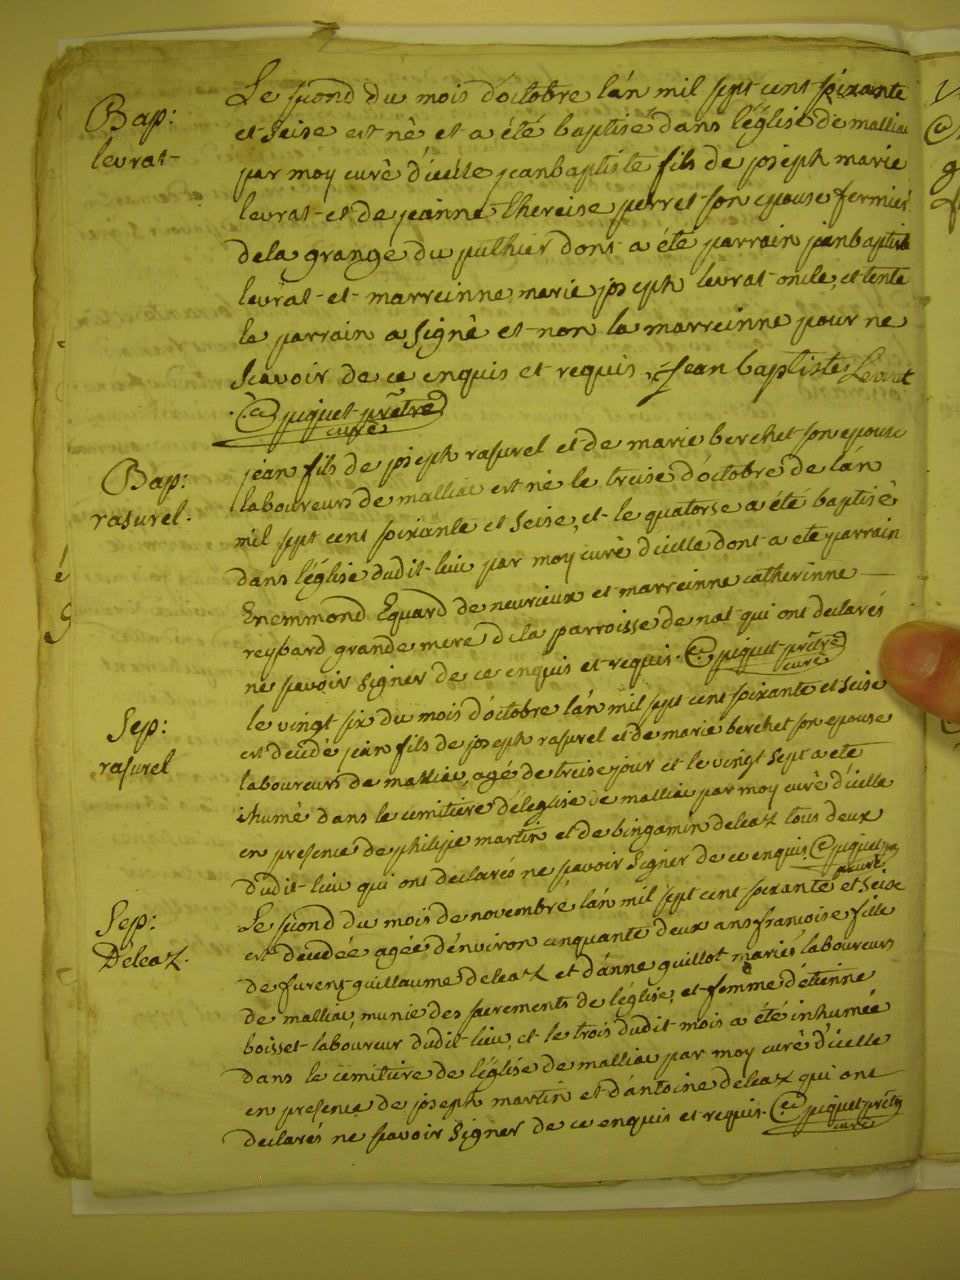 Bap:
levrat-
Le second du mois d'octobre l'an mil sept cent soixante
et seise est né et a été baptisé dans l'église de malliac
par moy curé d'icelle jeanbaptiste fils de joseph marie
levrat et de jeanne thereise perret son epouse fermier
dela grange du pulhier dont a été parrain jeanbaptiste
levrat et marreinne marie joseph levrat oncle, et tente
le parrain a signé et non la marreinne pour ne
scavoir de ce enquis et requis. jean baptiste Levrat
piquet prêtre
curé
Bap:
rasurel.
jean fils de joseph rasurel et de marie berchet son epouse
laboureurs de malliac est né le treise d'octobre de l'an
mil sept cent soixante et seise, et le quatorse a été baptisé
dans l'église dudit lieu par moy curé d'icelle dont a ete parrain
Enemmond Equard de neurieux et marreinne catherinne
reybard grande mere de la parroisse de nat qui ont declarés
ne savoir signer de ce enquis et requis. piquet prêtre
curé
Sep:
rasurel
le vingt six du mois d'octobre l'an mil sept cent soixante et seise
est decedé jean fils de joseph rasurel et de marie berchet son epouse
laboureurs de malliac, agé de treise jour et le vingt sept a ete
ihumé dans le cemitiere d'eleglise de malliac par moy curé d'icelle
en presence de philipe martin et de bingamin deleaz tous deux
dudit lieu qui ont declarés ne savoir signer de ce enquis. piquet
curé
Sep:
Deleaz.
Le second du mois de novembre l'an mil sept cent soixante et seise
est decedée agée d'environ cinquante deux ans francoise fille
de furent guillaume deleaz et d'anne guillot mariés laboureurs
de malliac, munie des sacrements de l'église, et femme d'étienne
boisset laboureur dudit lieu, et le trois dudit mois a été inhumée
dans le cemitiere de l'église de malliac par moy curé d'icelle
en presence de joseph martin et d'antoine deleaz qui ont
declarés ne savoir signer de ce enquis et requis. piquet prêtre
curé